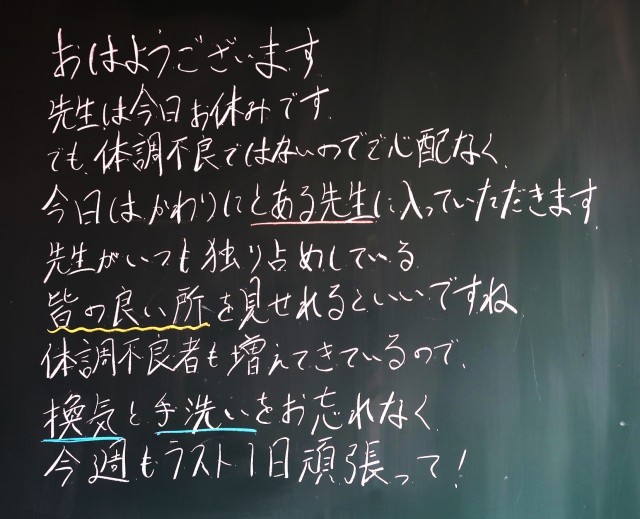 おはようございます
先生は今日お休みです.
でも、体調不良ではないのでご心配なく.
今日は、かわりにとある先生に入っていただきます.
先生がいつも独り占めしている
皆の良い所を見せれるといいですね
体調不良者も増えてきているので、
換気と手洗いをお忘れなく.
今週もラスト1日頑張って!